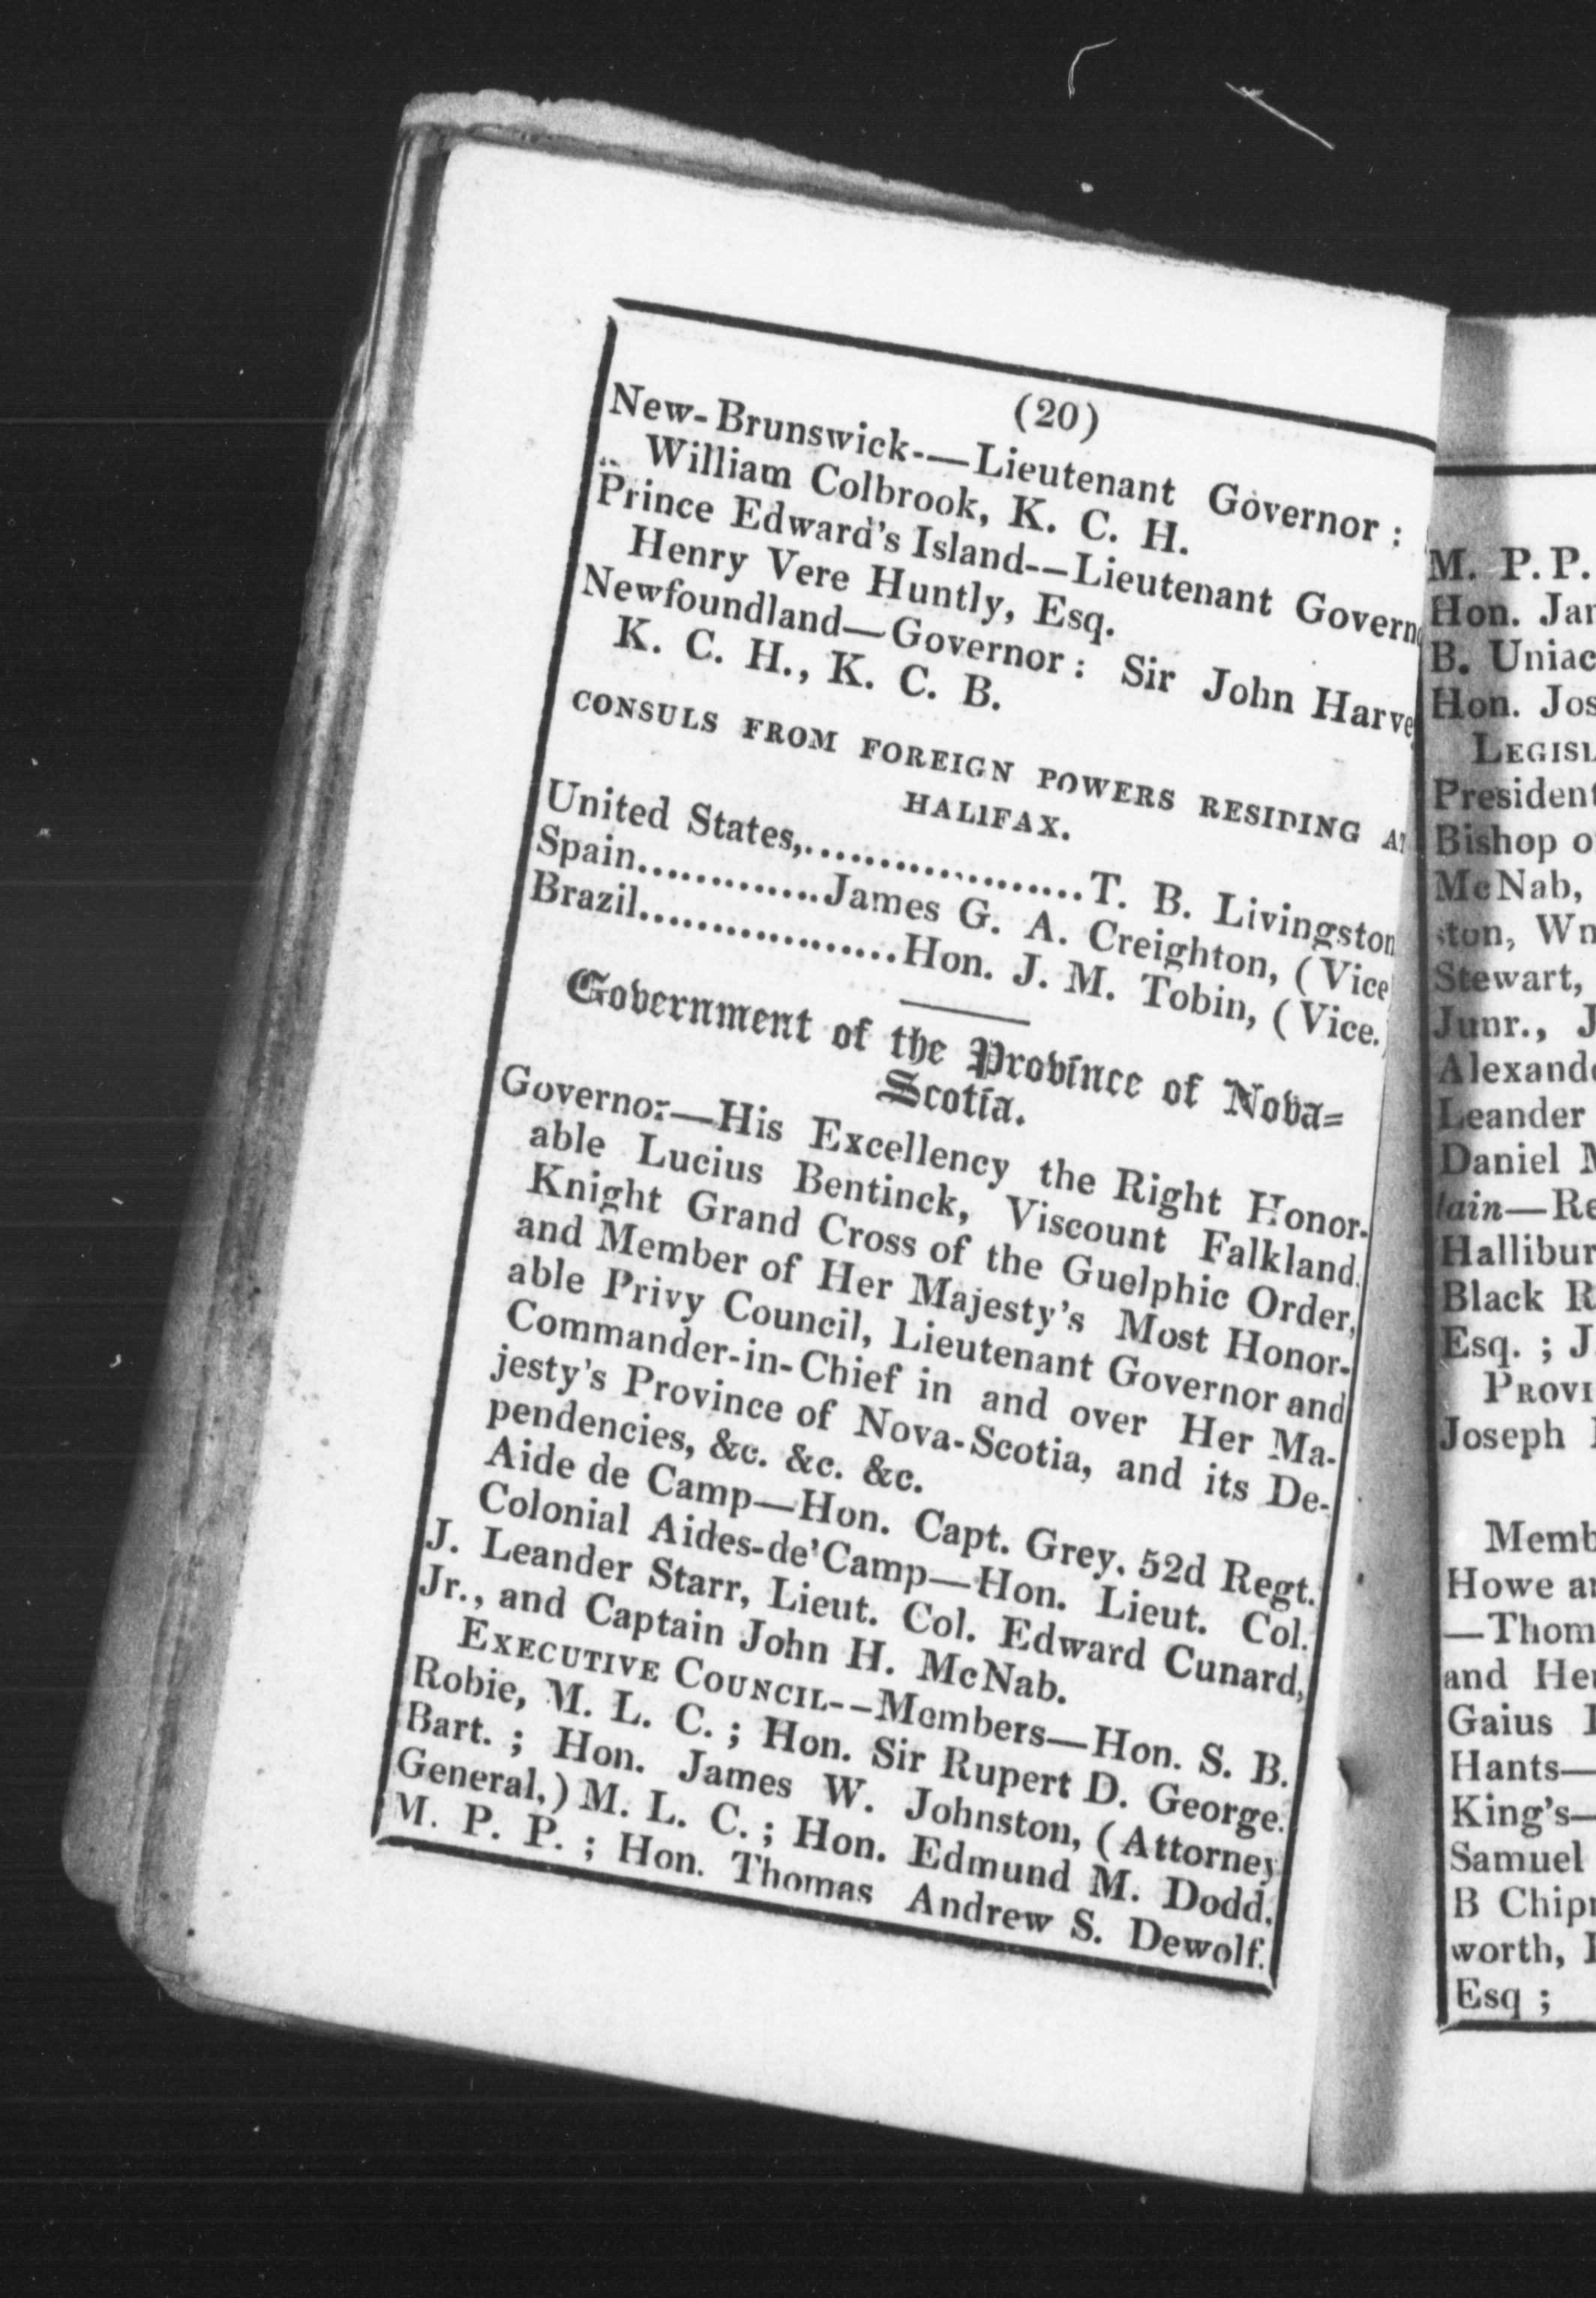 (20)
New-Brunswick-—Lieutenant Governor :
William Colbrook, K. C. H.
Prince Edward's Island--Lieutenant Governo
Henry Vere Huntly, Esq.
Newfoundland—Governor: Sir John Harve
K. C. H., K. C. B.
CONSULS FROM FOREIGN POWERS RESIDING AT
HALIFAX.
United States,...................T. B. Livingston
Spain.............James G. A. Creighton, (Vice
Brazil..................Hon. J. M. Tobin, (Vice.)
Government of the Province of Nova=
Scotia.
Governor—His Excellency the Right Honor-
able Lucius Bentinck, Viscount Falkland,
Knight Grand Cross of the Guelphic Order,
and Member of Her Majesty's Most Honor-
able Privy Council, Lieutenant Governor and
Commander-in-Chief in and over Her Ma-
jesty's Province of Nova-Scotia, and its De-
pendencies, &c. &c. &c.
Aide de Camp—Hon. Capt. Grey, 52d Regt.
Colonial Aides-de'Camp—Hon. Lieut. Col.
J. Leander Starr, Lieut. Col. Edward Cunard,
Jr., and Captain John H. McNab.
EXECUTIVE COUNCIL--Members—Hon. S. B.
Robie, M. L. C. ; Hon. Sir Rupert D. George.
Bart. ; Hon. James W. Johnston, (Attorney
General,) M. L. C. ; Hon. Edmund M. Dodd,
M. P. P. ; Hon. Thomas Andrew S. Dewolf.
M. P. P.
Hon. Jam
B. Uniac
Hon. Jos
LEGISL
President
Bishop o
McNab,
ston, Wm
Stewart,
Junr., J
Alexande
Leander
Daniel M
tain—Re
Hallibur
Black R
Esq. ; J.
PROVI
Joseph
Memb
Howe an
—Thom
and Hen
Gaius
Hants—
King's—
Samuel
B Chipm
worth,
Esq ;